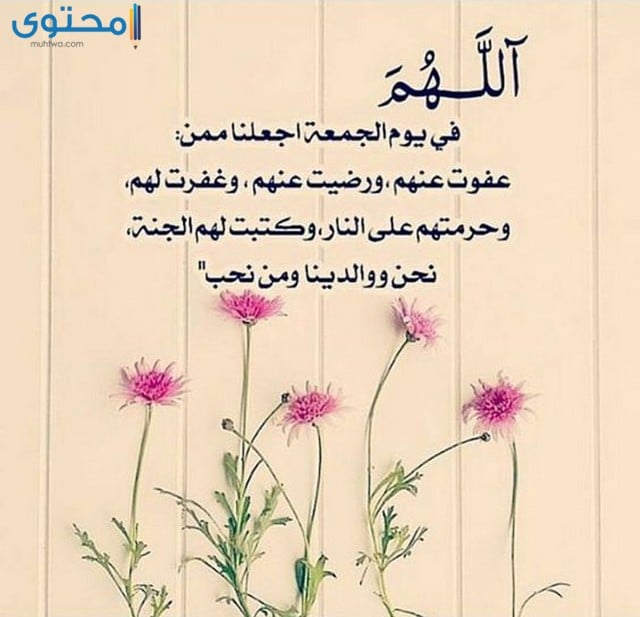 محتوى
muhtwa.com
آللَّـهُمَ
في يوم الجمعة اجعلنا ممن:
عفوت عنهم، ورضيت عنهم، وغفرت لهم،
وحرمتهم على النار، وكتبت لهم الجنة،
نحن ووالدينا ومن نحب"